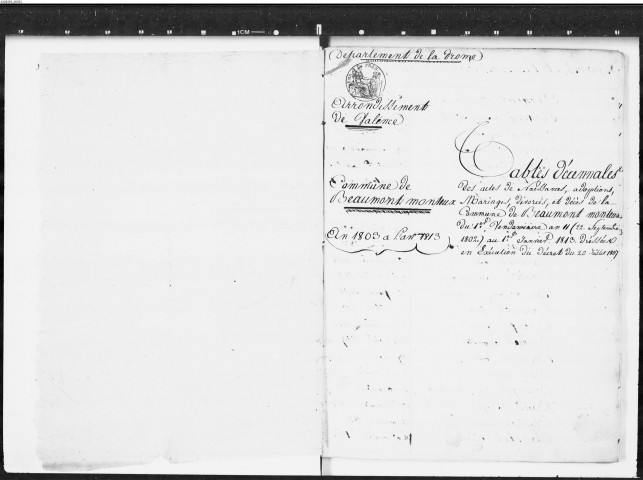 Département de la Drome
Arrondissement
de Valence
Commune de
Beaumont monteux
An 1803 a l'an 1813
Tables décennales
des actes de Naissances, adoptions,
Mariages, divorces, et décès de la
Commune de Beaumont monteux
du 1er Vendemiaire an 11 (22 Septembre
1802) au 1er Janvier 1813. Dressées
en Exécution du décret du 20 Juillet 1807
1CM